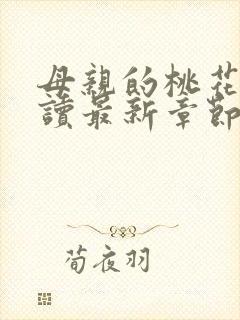 母親的桃花
讀最新章節
荀夜羽